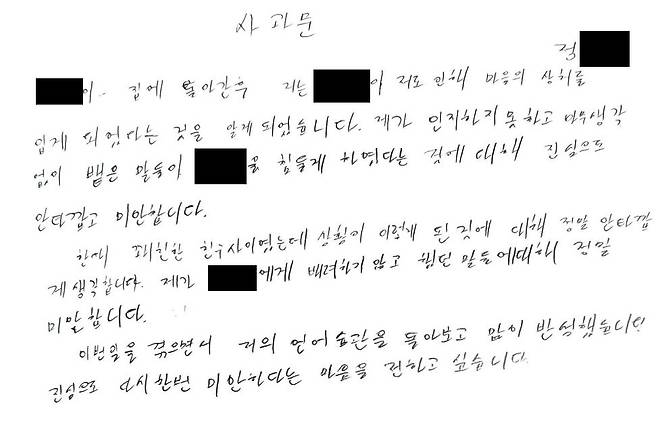 사과문
정
이 집에 돌아간후 저는 이 저로 인해 마음의 상처를
입게 되었다는 것을 알게 되었습니다. 제가 인지하지 못하고 아무생각
없이 뱉은 말들이 을 힘들게 하였다는 것에 대해 진심으로
안타깝고 미안합니다.
한때 꽤 친한 친구사이였는데 상황이 이렇게 된 것에 대해 정말 안타깝
게 생각합니다. 제가 에게 배려하지 않고 했던 말들에대해 정말
미말합니다.
이번일을 겪으면서 저의 언어습관을 돌아보고 많이 반성했습니다
진심으로 다시한번 미안하다는 마음을 전하고 싶습니다.